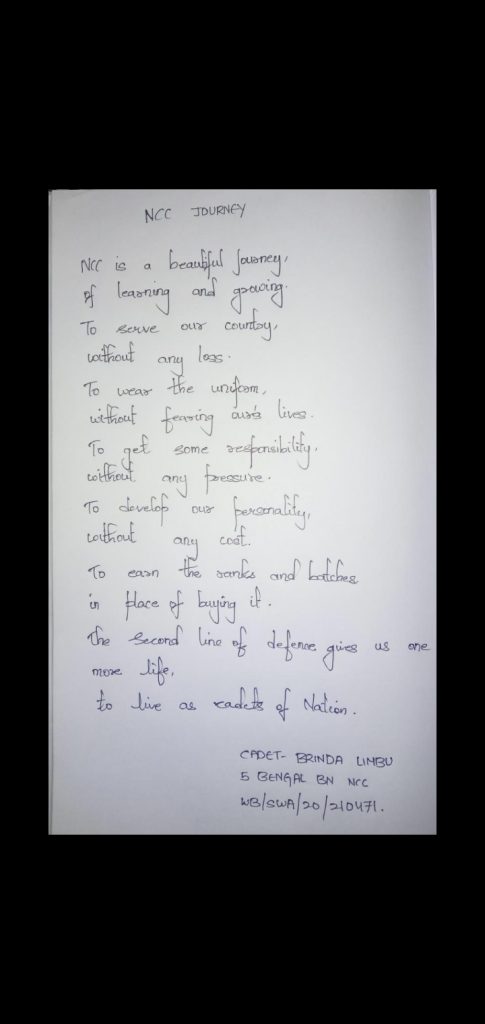 NCC JOURNEY
NCC is a beautiful journey,
of learning and growing.
To serve our country,
without any loss.
To wear the uniform,
without fearing ours lives.
To get some responsibility,
without any pressure.
To develop our personality,
without any cost.
To earn the ranks and batches
in place of buying it.
The second line of defence gives us one
more life,
to live as cadets of Nation.
CADET- BRINDA LIMBU
5 BENGAL BN NCC
WB/SWA/20/210471.